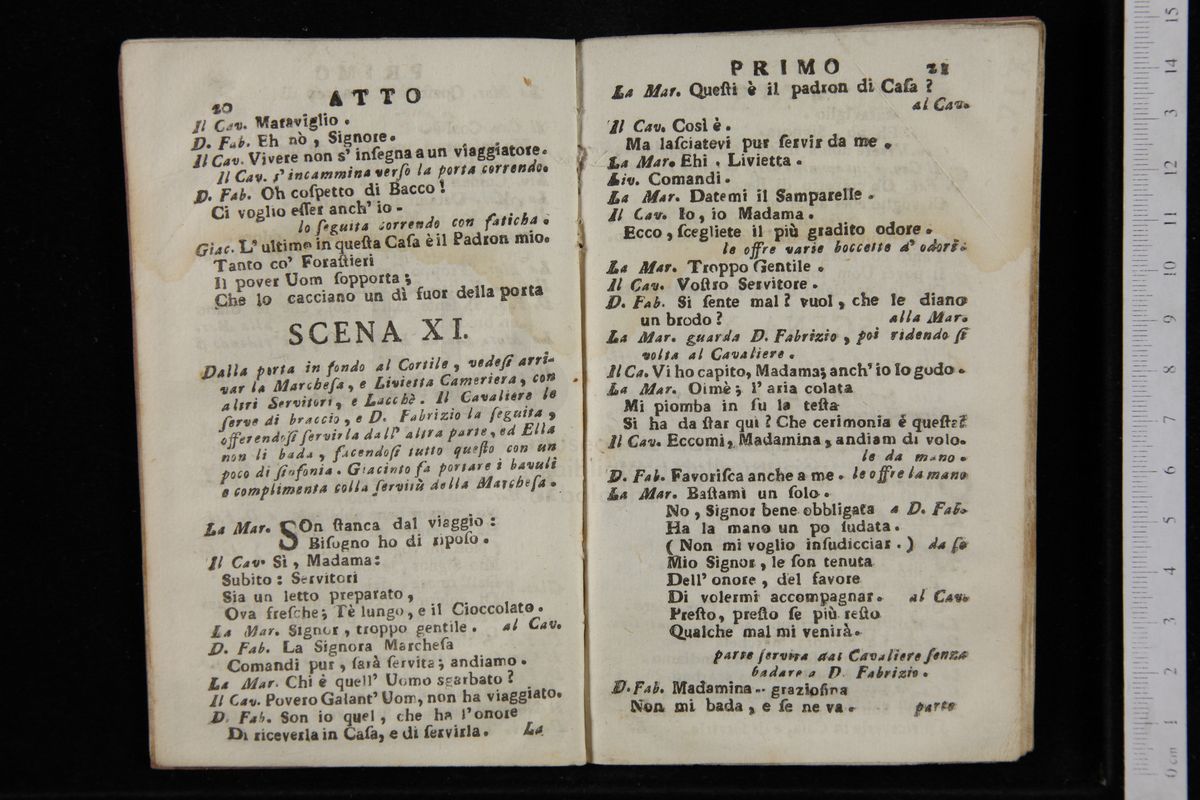 20 ATTO
Il Cav. Maraviglio.
D. Fab. Eh nò, Signore.
Il Cav. Vivere non s' inſegna a un viaggiatore.
Il Cav. s' incammina verſo la porta correndo.
D. Fab. Oh coſpetto di Bacco!
Ci voglio eſſer anch' io -
lo ſeguita correndo con faticha.
Giac. L' ultimo in queſta Caſa è il Padron mio.
Tanto co' Foraſtieri
Il pover Uom ſopporta;
Che lo cacciano un dì fuor della porta
SCENA XI.
Dalla porta in fondo al Cortile, vedeſi arri-
var la Marcheſa, e Livietta Cameriera, con
altri Servitori, e Lacchè. Il Cavaliere le
ſerve di braccio, e D. Fabrizio la ſeguita,
offerendoſi ſervirla dall' altra parte, ed Ella
non li bada, facendoſi tutto queſto con un
poco di ſinfonia. Giacinto fa portare i bavuli
e complimenta colla ſervitù della Marcheſa.
La Mar. SOn ſtanca dal viaggio:
Biſogno ho di ripoſo.
Il Cav. Sì, Madama:
Subito: Servitori
Sia un letto preparato,
Ova freſche; Tè lungo, e il Cioccolato.
La Mar. Signor, troppo gentile. al Cav.
D. Fab. La Signora Marcheſa
Comandi pur, ſarà ſervita; andiamo.
La Mar. Chi è quell' Uomo sgarbato?
Il Cav. Povero Galant' Uom, non ha viaggiato.
D. Fab. Son io quel, che ha l'onore
Di riceverla in Caſa, e di ſervirla. La
PRIMO 21
La Mar. Queſti è il padron di Caſa?
al Cav.
Il Cav. Così è.
Ma laſciatevi pur ſervir da me.
La Mar. Ehi, Livietta.
Liv. Comandi.
La Mar. Datemi il Samparelle.
Il Cav. Io, io Madama.
Ecco, ſcegliete il più gradito odore.
le offre varie boccette d' odori.
La Mar. Troppo Gentile.
Il Cav. Voſtro Servitore.
D. Fab. Si ſente mal? vuol, che le diano
un brodo? alla Mar.
La Mar. guarda D. Fabrizio, poi ridendo ſi
volta al Cavaliere.
Il Ca. Vi ho capito, Madama; anch' io lo godo.
La Mar. Oimè; l' aria colata
Mi piomba in ſu la teſta
Si ha da ſtar qui? Che cerimonia è queſta?
Il Cav. Eccomi, Madamina, andiam di volo.
le da mano.
D. Fab. Favoriſca anche a me. le offre la mano
La Mar. Baſtami un ſolo.
No, Signor bene obbligata a D. Fab.
Ha la mano un po ſudata.
( Non mi voglio inſudicciar. ) da ſe
Mio Signor, le ſon tenuta
Dell' onore, del favore
Di volermi accompagnar. al Cav.
Preſto, preſto ſe più reſto
Qualche mal mi venirà.
parte ſervita dal Cavaliere ſenza
badare a D. Fabrizio.
D. Fab. Madamina.. grazioſina
Non mi bada, e ſe ne va. parte
15
14
13
12
11
10
9
8
7
6
5
4
3
2
1
0 cm